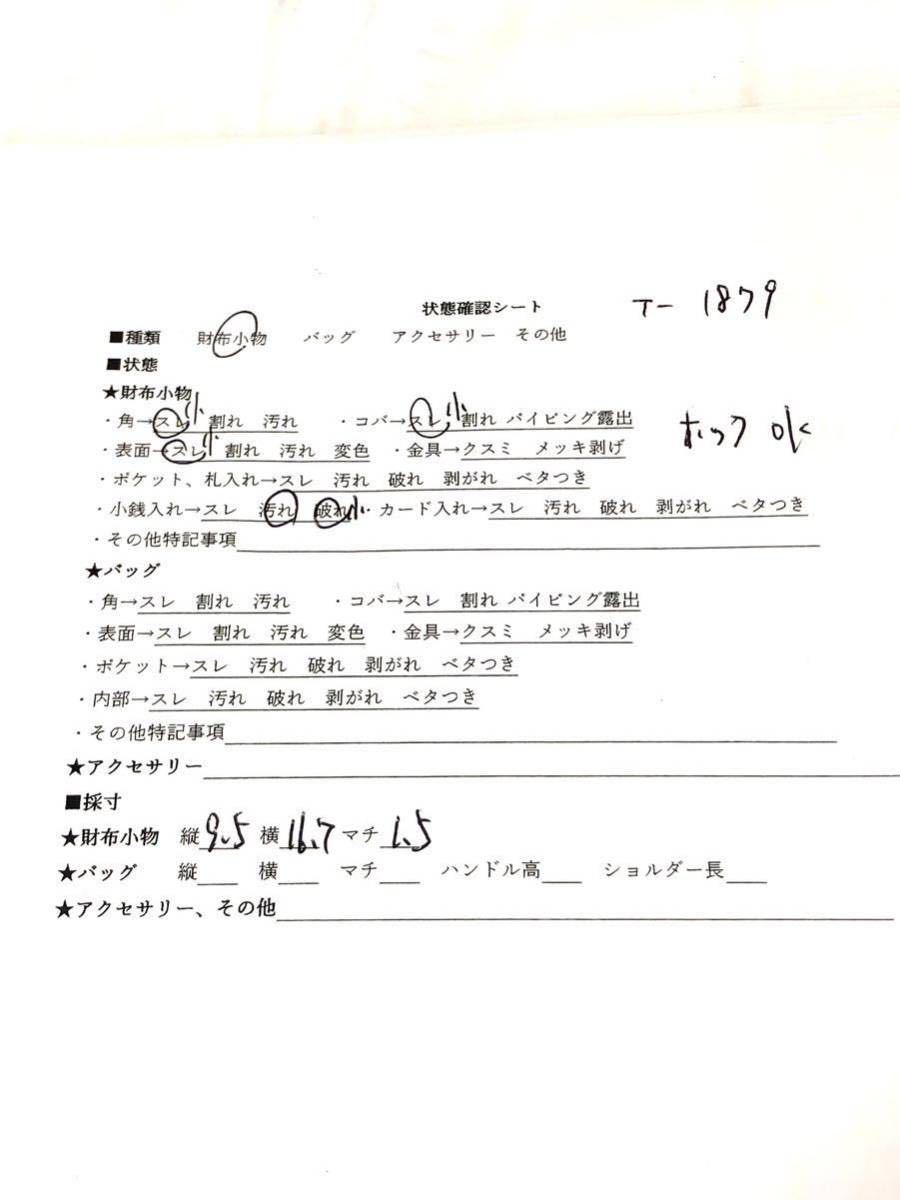 状態確認シート T- 1879
■種類 財布小物 バッグ アクセサリー その他
■状態
★財布小物
・角→スレ小 割れ 汚れ ・コバ→スレ小 割れ パイピング露出
・表面→スレ小 割れ 汚れ 変色 ・金具→クスミ メッキ剥げ ホック OK
・ポケット、札入れ→スレ 汚れ 破れ 剥がれ ベタつき
・小銭入れ→スレ 汚れ 破れ小 ・カード入れ→スレ 汚れ 破れ 剥がれ ベタつき
・その他特記事項
★バッグ
・角→スレ 割れ 汚れ ・コバ→スレ 割れ パイピング露出
・表面→スレ 割れ 汚れ 変色 ・金具→クスミ メッキ剥げ
・ポケット→スレ 汚れ 破れ 剥がれ ベタつき
・内部→スレ 汚れ 破れ 剥がれ ベタつき
・その他特記事項
★アクセサリー
■採寸
★財布小物 縦9.5 横16.7 マチ1.5
★バッグ 縦 横 マチ ハンドル高 ショルダー長
★アクセサリー、その他